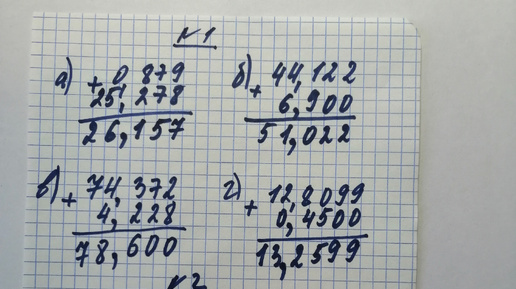 №1
а) + 0,879
25,278
26,157
б) + 44,122
6,900
51,022
в) + 74,372
4,228
78,600
г) + 12,8099
0,4500
13,2599
№2